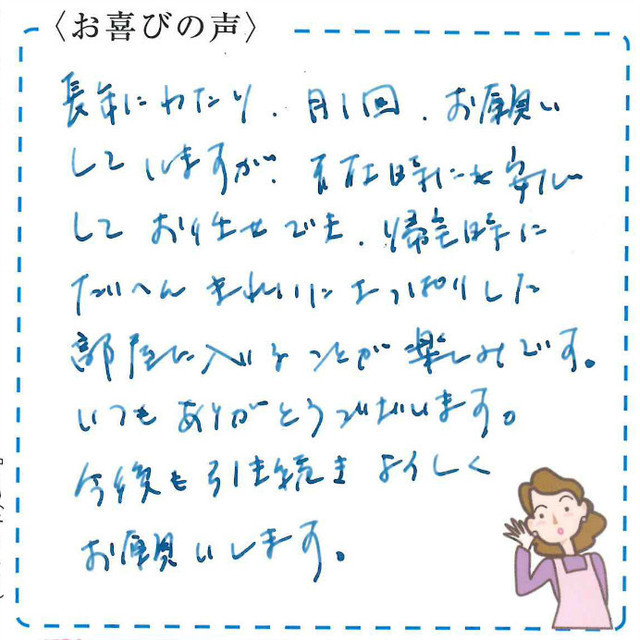 〈お喜びの声〉
長年にわたり、月1回、お願い
していますが、不在時にも安心
してお任せでき、帰宅時に
たいへんきれいにさっぱりした
部屋に入いることが楽しみです。
いつもありがとうございます。
今後も引き続きよろしく
お願いします。